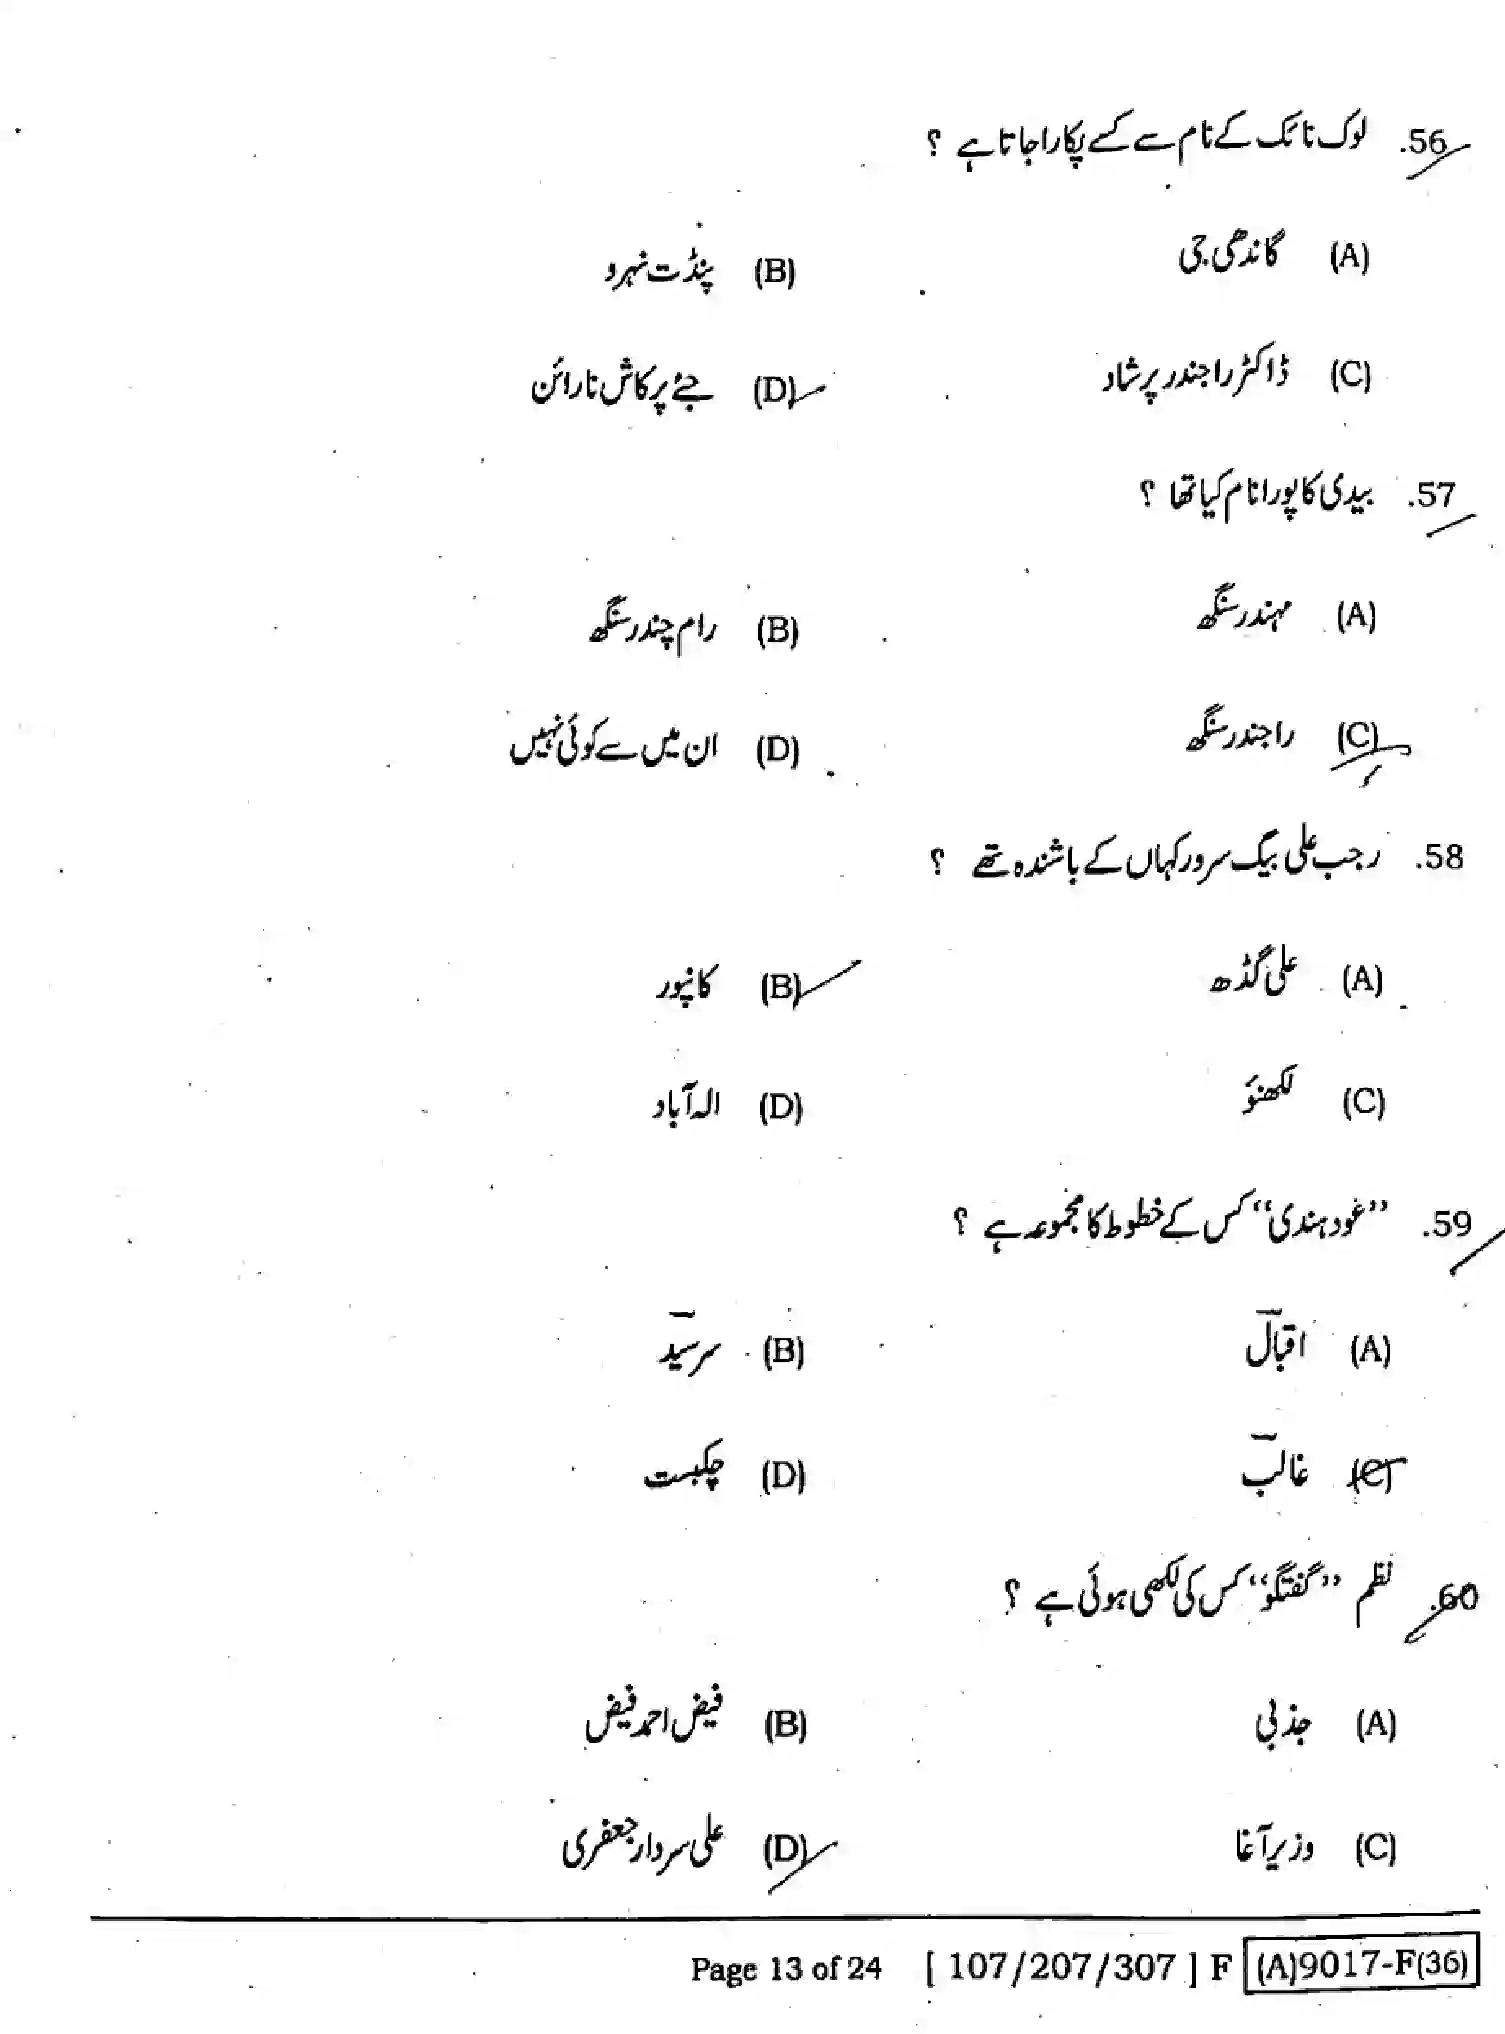 56. لوک نائک کے نام سے کسے پکارا جاتا ہے ؟
(A) گاندھی جی (B) پنڈت نہرو
(C) ڈاکٹر راجندر پرشاد (D) جئے پرکاش نارائن
57. بیدی کا پورا نام کیا تھا ؟
(A) مہندر سنگھ (B) رام چندر سنگھ
(C) راجندر سنگھ (D) ان میں سے کوئی نہیں
58. رجب علی بیگ سرور کہاں کے باشندہ تھے ؟
(A) علی گڈھ (B) کانپور
(C) لکھنؤ (D) الہ آباد
59. ’’عود ہندی‘‘ کس کے خطوط کا مجموعہ ہے ؟
(A) اقبالؔ (B) سرسیدؔ
(C) غالبؔ (D) چکبست
60. نظم ’’گفتگو‘‘ کس کی لکھی ہوئی ہے ؟
(A) جذبی (B) فیض احمد فیض
(C) وزیر آغا (D) علی سردار جعفری
Page 13 of 24 [ 107/207/307 ] F (A)9017-F(36)